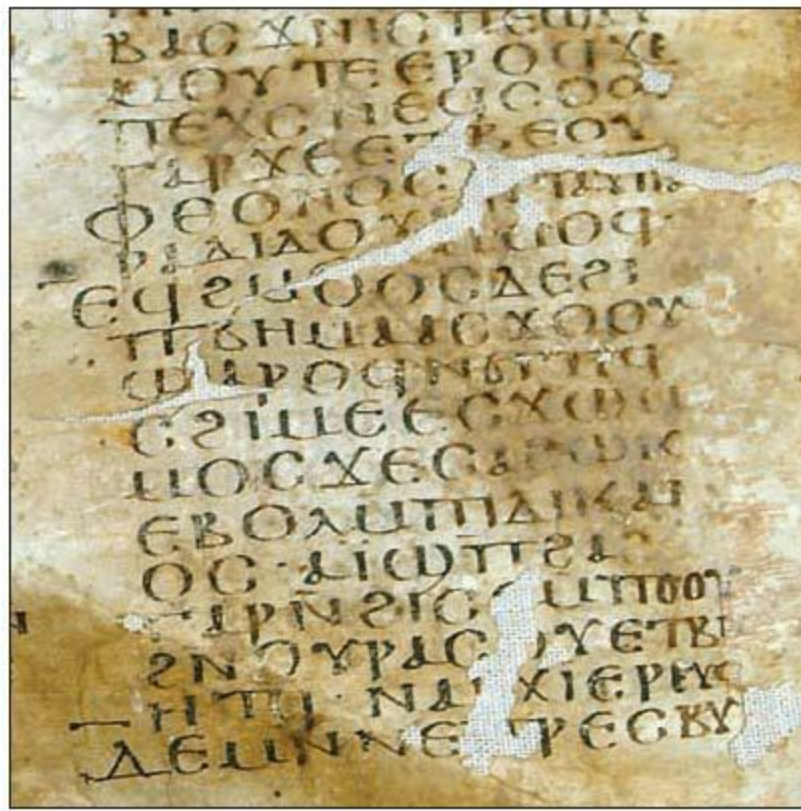 ⲃⲁⲥϫⲛⲓⲥⲡⲉϣⲁⲩ
ⲙⲟⲩⲧⲉⲉⲣⲟϥϫⲉ
ⲡⲉⲭⲥⲛⲉϥⲥⲟⲟ
ⲅⲁⲣϫⲉⲉⲧⲃⲉⲟⲩ
ⲫⲑⲟⲛⲟⲥ ⲛⲧⲁⲩⲡⲁ
ⲣⲁⲇⲓⲇⲟⲩ ⲙⲙⲟϥ
ⲉϥϩⲙⲟⲟⲥⲇⲉϩⲓ
ⲡⲃⲏⲙⲁⲁⲥϫⲟⲟⲩ
ϣⲁⲣⲟϥⲛϭⲓⲧϥ
ⲥϩⲓⲙⲉⲉⲥϫⲱⲙ
ⲙⲟⲥϫⲉⲥⲁϩⲱⲕ
ⲉⲃⲟⲗⲙⲡⲇⲓⲕⲁⲓ
ⲟⲥ·ⲁⲓϣⲡϩⲁ
ⲅⲁⲣⲛϩⲓⲥⲉⲙⲡⲟⲟⲩ
ϩⲛⲟⲩⲣⲁⲥⲟⲩⲉⲧⲃ
ⲏⲧϥ·ⲛⲁⲣⲭⲓⲉⲣⲉⲩⲥ
ⲇⲉⲙⲛⲛⲉⲡⲣⲉⲥⲃⲩ